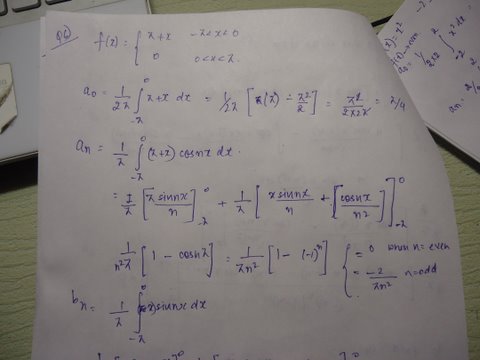 Q6) f(x) = { π+x -π<x<0
0 0<x<π.
a₀ = 1/2π ∫_{-π}^{0} π+x dx = 1/2π [π(π) - π²/2] = π²/2π×2 = π/4
aₙ = 1/π ∫_{-π}^{0} (π+x) cosnx dx.
= 1/π [π sinnx/n]_{-π}^{0} + 1/π [x sinnx/n + [cosnx/n²]]_{-π}^{0}
1/n²π [1 - cosnπ] = 1/πn² [1 - (-1)ⁿ] { = 0 when n = even
= -2/πn² n = odd
bₙ = 1/π ∫_{-π}^{0} (π+x) sinnx dx